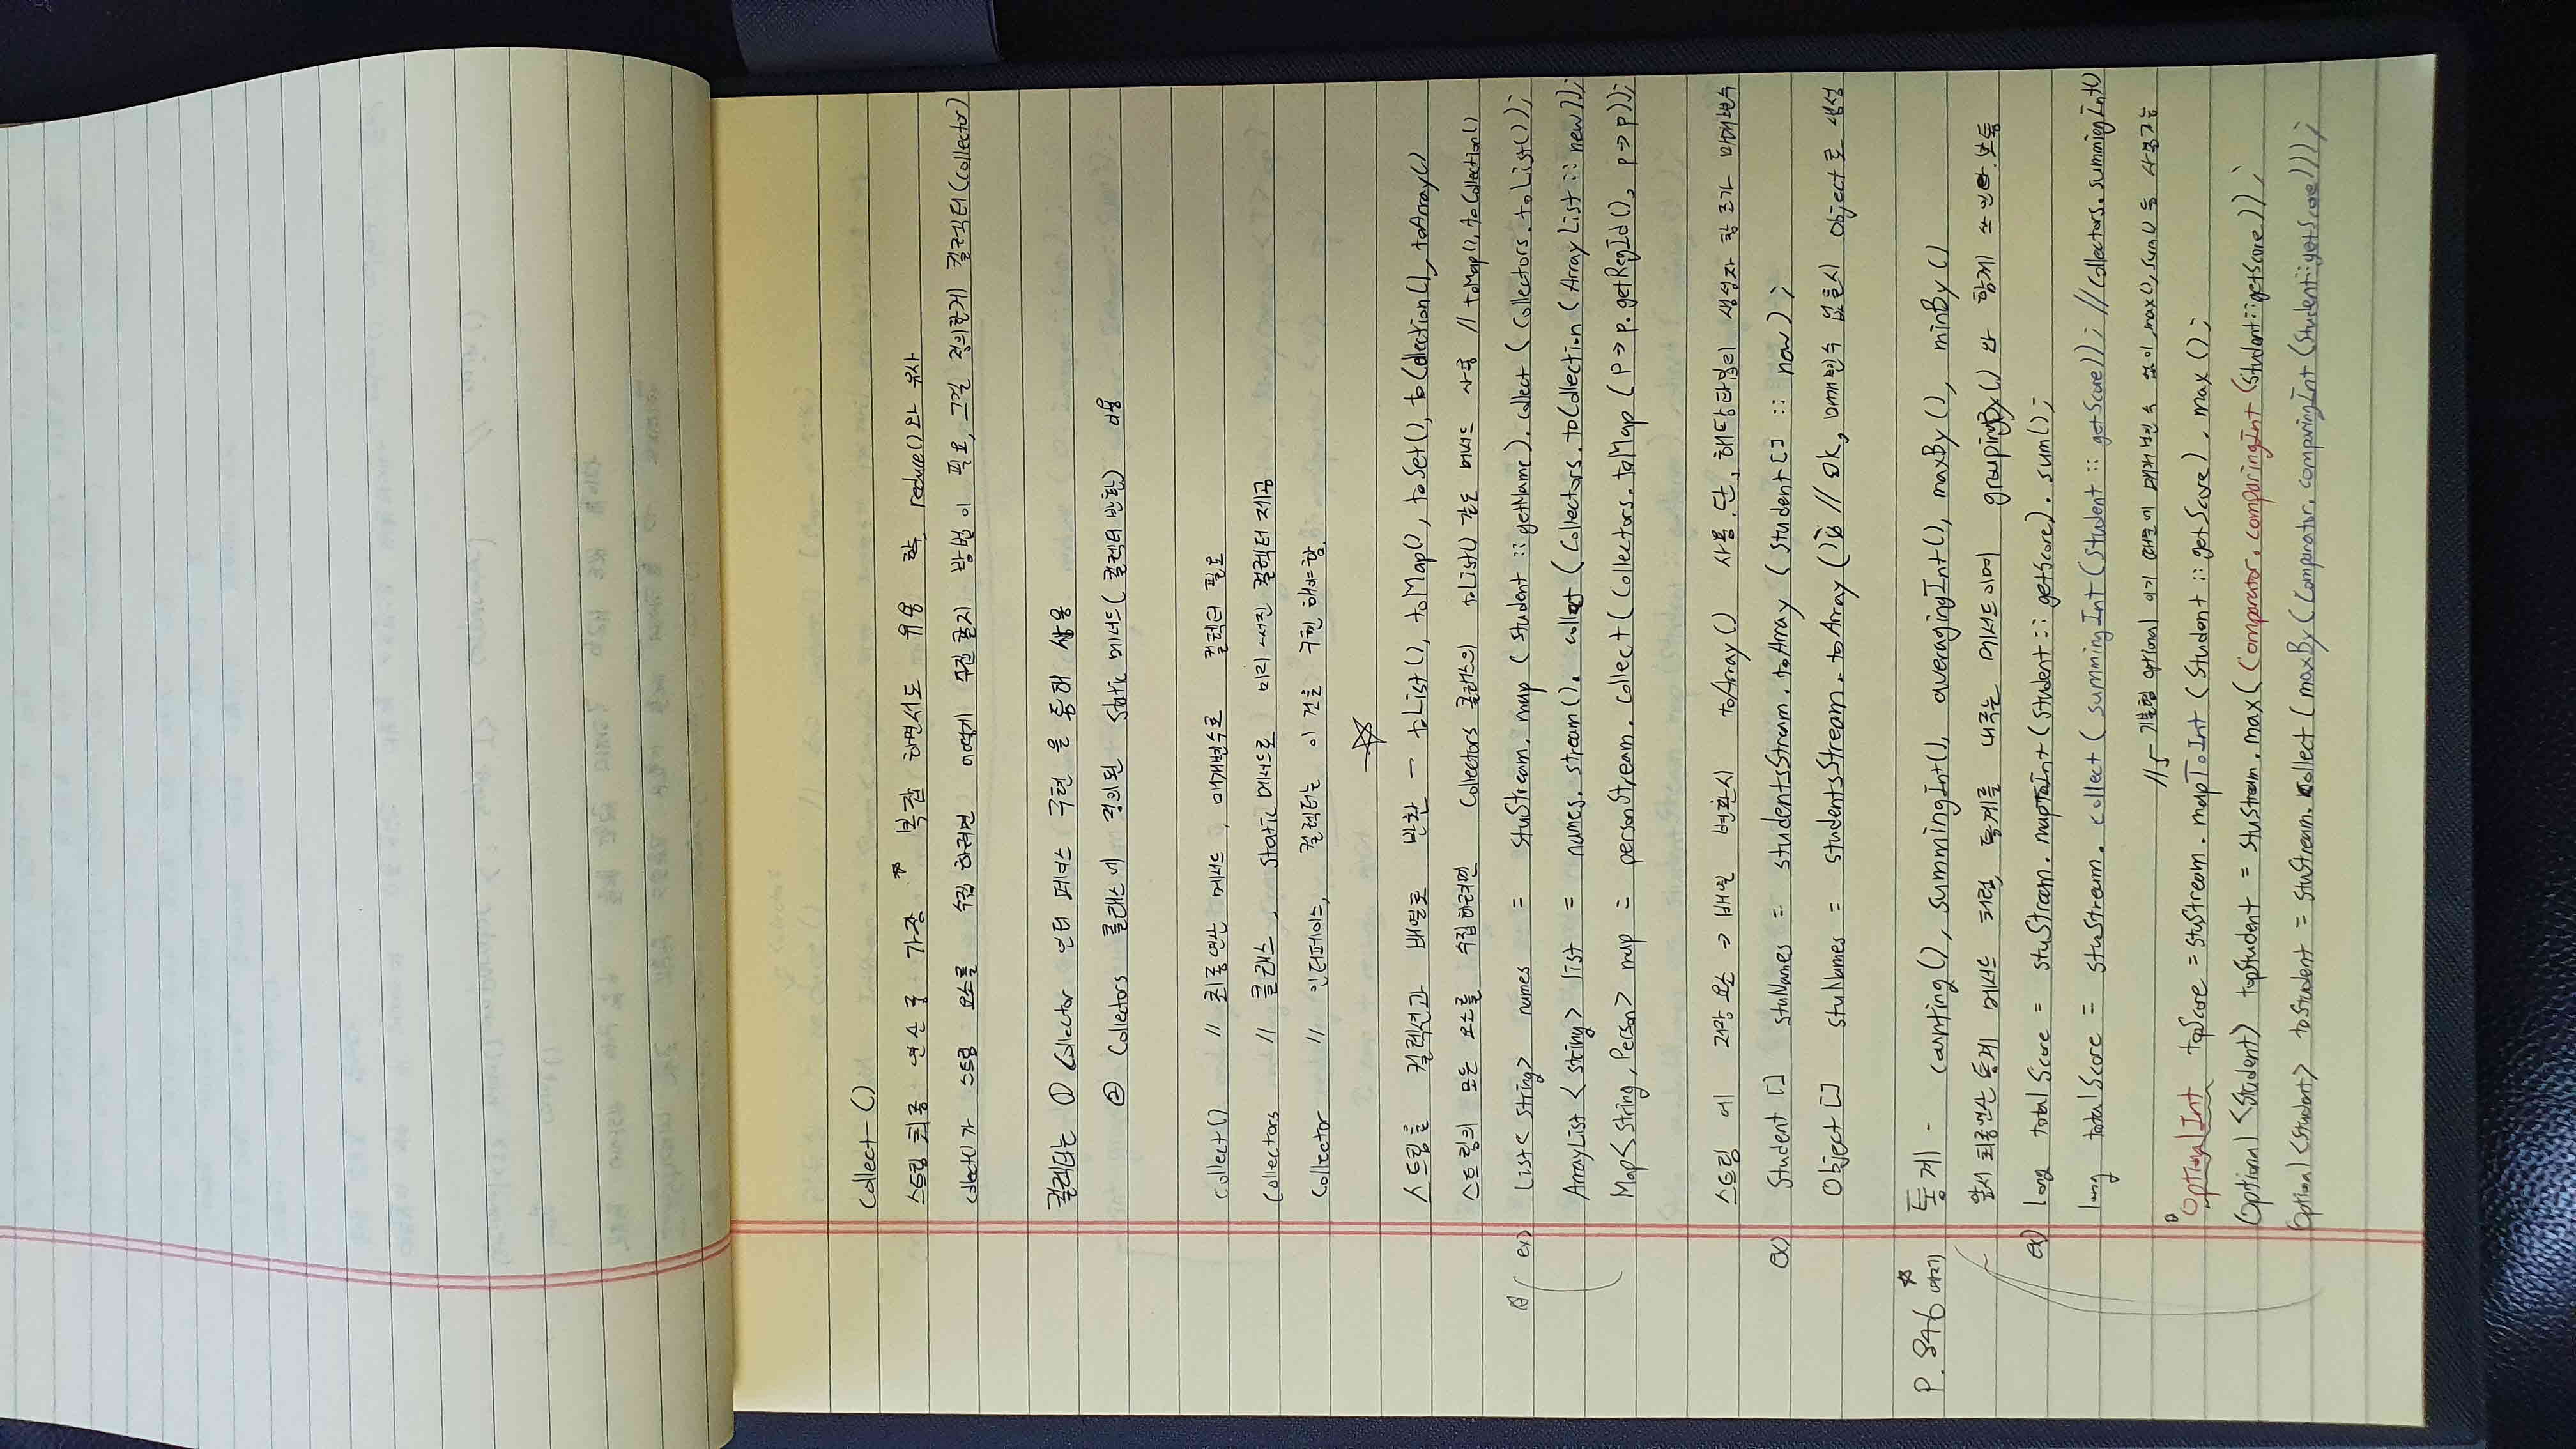 collect ()
스트림 최종 연산 중 가장 ☆ 복잡 하면서도 유용 함 reduce()와 유사
collect()가 스트림 요소를 수집 하려면 어떻게 수집 할지 방법이 필요, 그걸 정의한게 컬렉터(collector)
컬렉터는 ① Collector 인터 페이스 구현 을 통해 사용
② Collectors 클래스에 정의된 static 메서드( 컬렉터 반환) 이용
collect() // 최종연산 메서드, 매개변수로 컬렉터 필요
Collectors // 클래스, static 메서드로 미리 작성된 컬렉터 제공
Collector // 인터페이스, 컬렉터는 이 것을 구현 해야함.
☆
스트림을 컬렉션과 배열로 반환 - toList(), toMap(), toSet(), toCollection(), toArray()
스트림의 모든 요소를 수집하려면 Collectors 클래스의 toList() 같은 메서드 사용 // toMap(), toCollection()
ex) List< String> names = stuStream. map ( Student :: getName ). collect ( Collectors. toList());
ArrayList < string > list = names. stream(). collect ( Collectors. toCollection ( Array List :: new ));
Map< String, Person> map = personStream. collect ( Collectors. toMap ( P → p. getRegId(), p → p));
스트림 에 저장 요소 → 배열 변환시 toArray() 사용. 단, 해당타입의 생성자 참조가 매개변수
ex) Student [] stuNames = studentsStream. toArray ( Student [] :: new ) ;
Object [] stuNames = studentsStream. toArray (); // Ok, 매개변수 없을시 object로 생성
P. 846 ☆ 여기 통계 - counting(), summingInt(), averagingInt(), maxBy(), minBy()
앞서 최종연산 통계 메서드 처럼, 통계를 내주는 메서드이며 groupingBy() 와 함께 쓰인다. 보통
ex) long totalScore = stuStream. mapToInt ( Student :: getScore). sum();
long totalScore = stuStream. collect ( summingInt ( Student :: getScore)); // Collectors. summingInt()
// 기본형 optional 이기 때문에 매개변수 없이 max(), sum() 등 사용가능
OptionalInt topScore = stuStream. mapToInt ( Student :: getScore ). max ();
Optional <Student> topStudent = stuStream. max( Comparator. comparingInt (Student::getScore));
Optional <Student> toStudent = stuStream. collect ( maxBy ( Comparator. comparingInt (Student::getScore)));